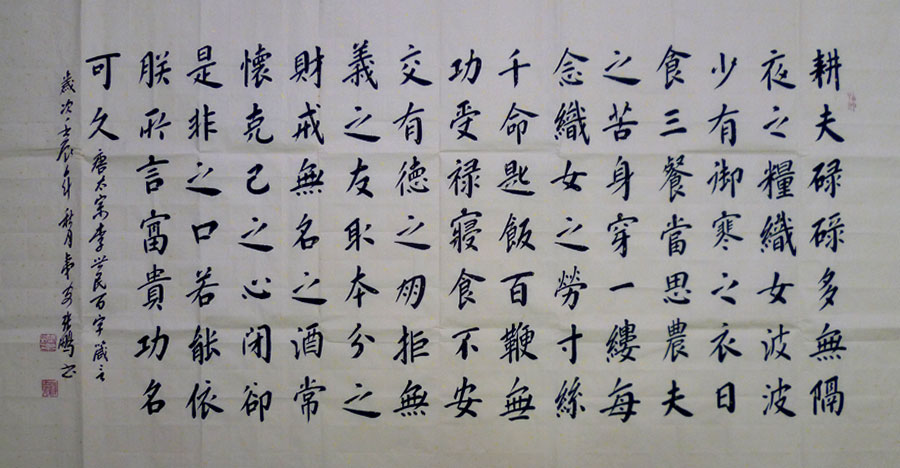 耕夫碌碌多無隔
夜之糧織女波波
少有御寒之衣日
食三餐當思農夫
之苦身穿一縷每
念織女之勞寸絲
千命匙飯百鞭無
功受禄寢食不安
交有德之朋拒無
義之友取本分之
財戒無名之酒常
懷克己之心闭卻
是非之口若能依
朕所言富貴功名
可久
唐太宗李世民百字箴言
歲次壬辰年秋月張鵬书